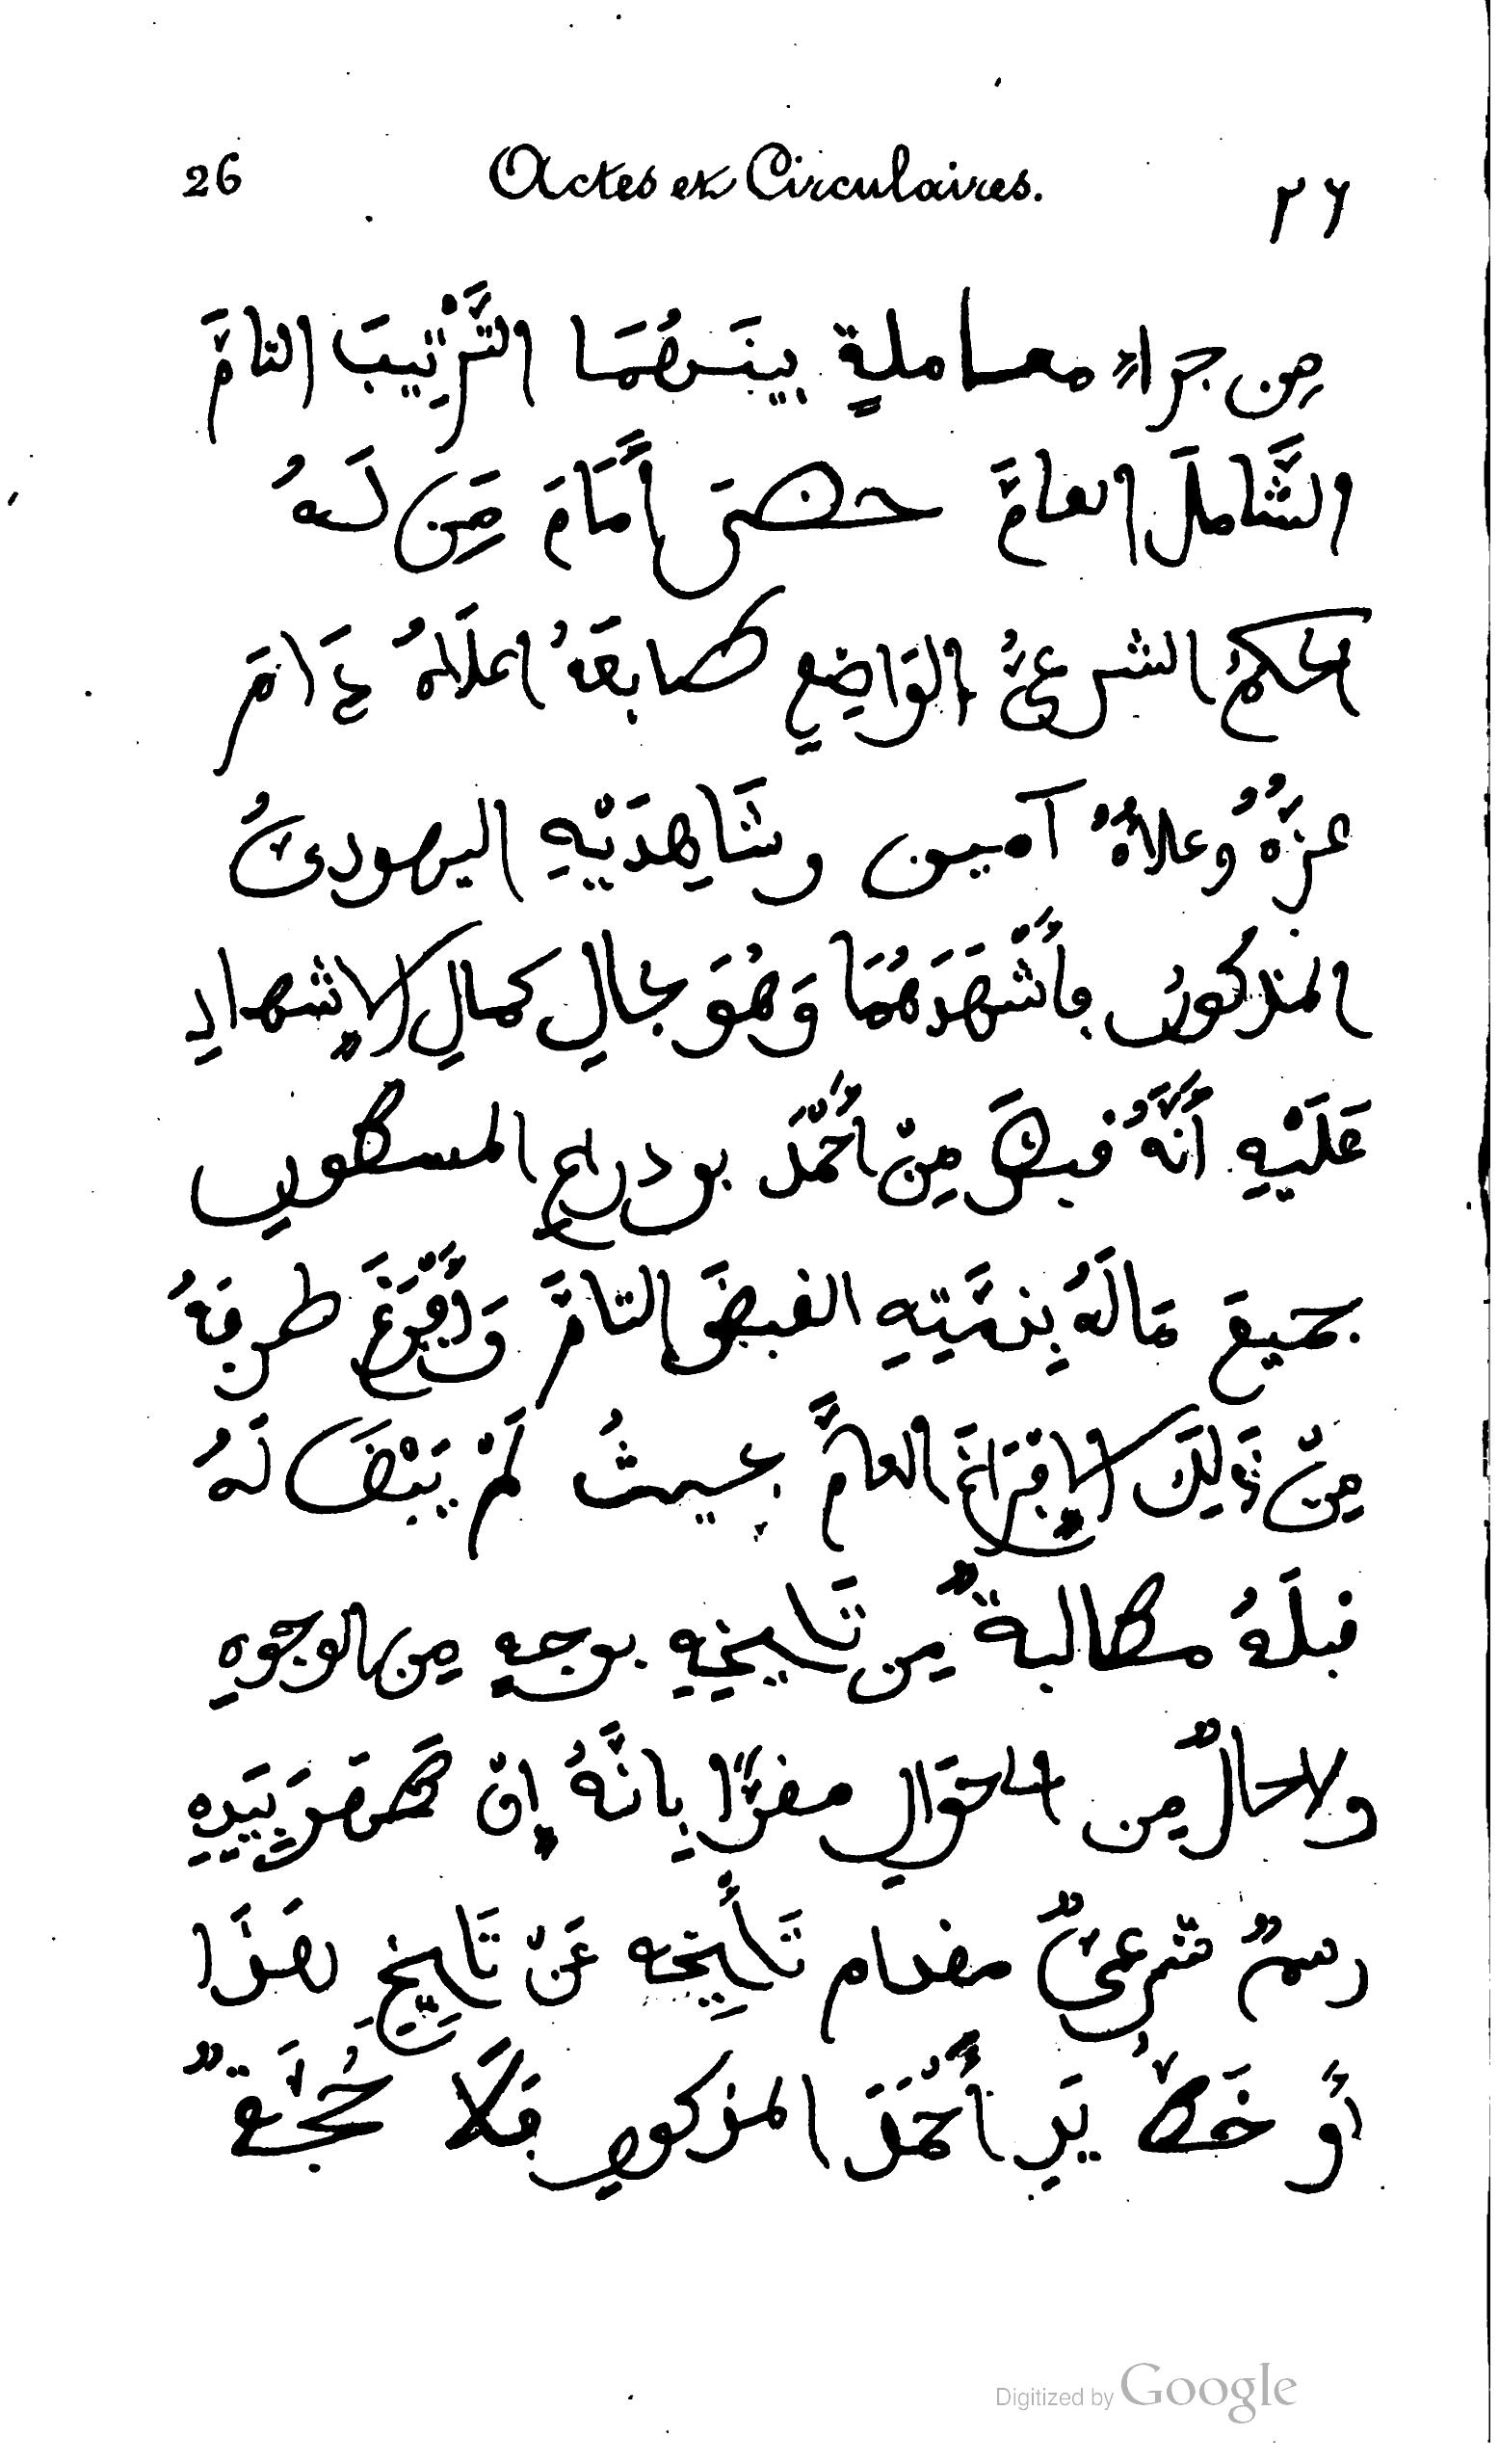 26 Actes et Circulaires. ٢٦
مِن جراءِ معاملةٍ بينَهُمَا التَّرْتِيبَ التامَّ
الشَّاملَ العامَّ حضرَ أَمَامَ مَن لَهُ
الحكمُ الشرعىُّ الوَاضِع طابعَهُ اعلَاهُ دَامَ
عزُهُ وعلاهُ آمين وشَاهِدَيْهِ اليهودىُّ
المذكورُ فأَشْهَدَهُمَا وَهُوَ بحالِ كمالِ الإشهادِ
عَلَيْهِ أَنَّهُ قبضَ مِنْ أَحْمَدَ بودرباع المسطورِ
جميعَ مَا لَهُ بِذمَّتِهِ القبضَ التامَّ وَأَبْرَأَ طرفَهُ
مِنْ ذَلِكَ الإِبْرَاءَ العامَّ بحيثُ لَمْ يَبْقَ لَهُ
قبلَهُ مطالبةٌ مِن تَاريخِهِ بوجهٍ مِن الوجوهِ
ولا حالٌ مِن الاحوَالِ مقرًّا بِانَّهُ إِنْ ظَهَرَ بِيَدِهِ
رسمٌ شرعىٌّ مقدام تَأريخه عَنْ تَاريخِ هَذَا
أَوْ خَطُّ يَدِ أَحْمَدَ المذكورِ فَلَا حُجَّةٌ
Digitized by Google